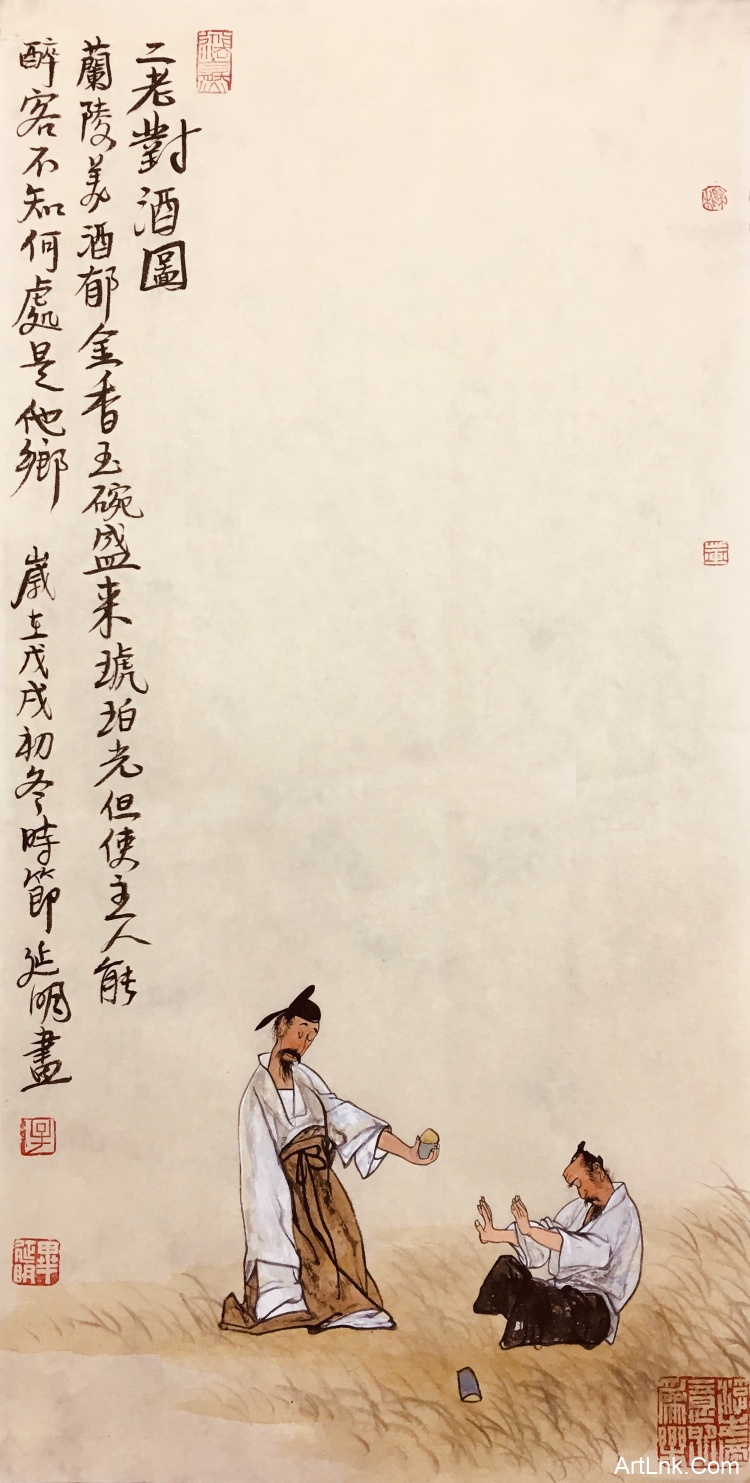 二老對酒圖
蘭陵美酒郁金香玉碗盛来琥珀光但使主人能
醉客不知何處是他鄉 歲在戊戌初冬時節延明畫
畢延明
ArtLnk.Com